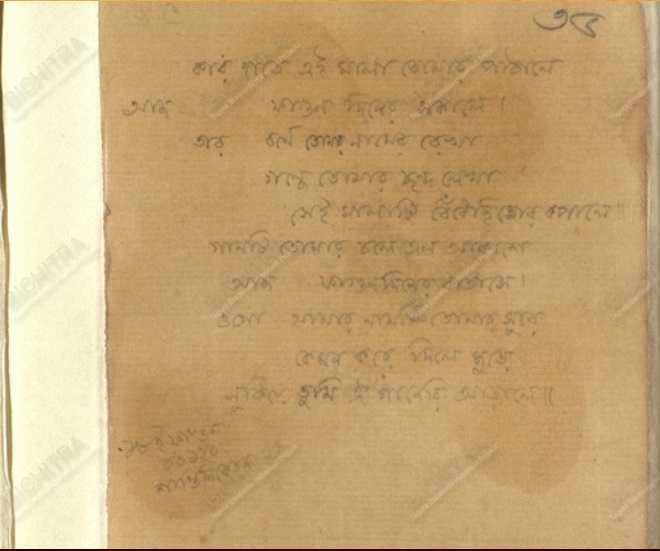 ৩৫
কার হাতে এই মালা তোমার পাঠালে
আজ ফাগুন দিনের সকালে।
তার বর্ণে তোমার নামের রেখা
গন্ধে তোমার ছন্দ লেখা
সেই মালাটি বেঁধেছি মোর কপালে॥
গানটি তোমার চলে এল আকাশে
আজ ফাগুন দিনের বাতাসে।
ওগো আমার নামটি তোমার সুরে
কেমন করে দিলে জুড়ে
লুকিয়ে তুমি ঐ গানেরি আড়ালে॥
ফাল্গুন
শান্তিনিকেতন
BICHITRA
BICHITRA
BICHITRA